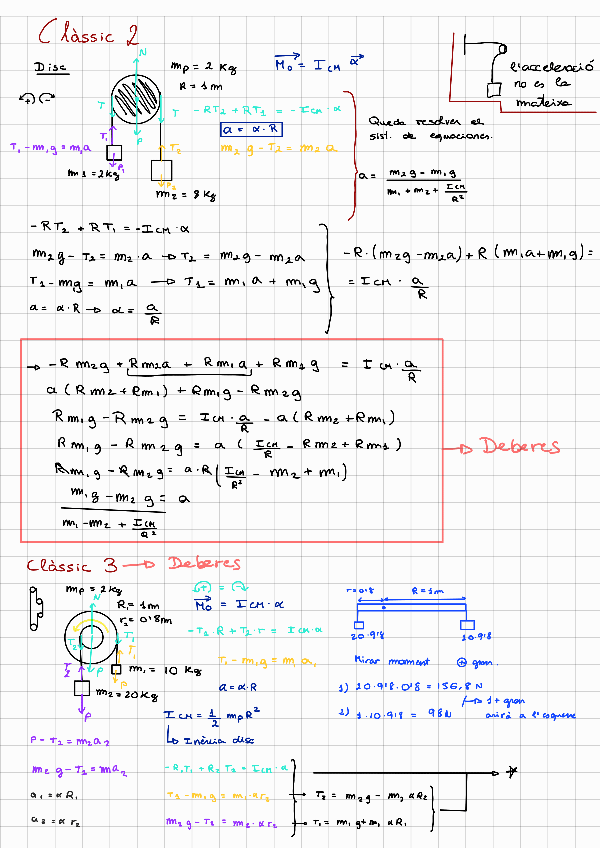 Clàssic 2
Disc
mp = 2 Kg
R = 1m
M₀ = I CM α
l'acceleració
no es la
mateixa
N
T
T
-RT₂ + RT₁ = -I CM · α
a = α · R
T₁ - m₁g = m₁a
T₁
P
T₂
m₂ g - T₂ = m₂ a
P₁
P₂
m₁ = 2kg
m₂ = 8 kg
Queda resoldre el
sist. de equacions.
a = m₂g - m₁g / m₁ + m₂ + I CM / R²
-RT₂ + RT₁ = -I CM · α
m₂g - T₂ = m₂ · a → T₂ = m₂g - m₂a
T₁ - mg = m₁a → T₁ = m₁a + m₁g
a = α · R → α = a / R
-R · (m₂g - m₂a) + R (m₁a + m₁g) =
= I CM · a / R
→ -R m₂g + R m₂a + R m₁a + R m₁g = I CM · a / R
a (R m₂ + R m₁) + R m₁g - R m₂g
R m₁g - R m₂g = I CM · a / R - a (R m₂ + R m₁)
R m₁g - R m₂g = a ( I CM / R - R m₂ + R m₁ )
R m₁g - R m₂g = a · R ( I CM / R² - m₂ + m₁ )
m₁g - m₂g / m₁ - m₂ + I CM / R² = a
→ Deberes
Clàssic 3 → Deberes
mp = 2kg
R₁ = 1m
r₂ = 0'8m
N
T₁
T₂
P
m₁ = 10 Kg
m₂ = 20 Kg
P
(+) = 
M₀ = I CM · α
-T₁ · R + T₂ · r = I CM α
T₁ - m₁g = m₁ a₁
a = α · R
I CM = 1/2 mp R²
↳ Inèrcia disc
r = 0'8
R = 1m
20 · 9'8
10 · 9'8
Mirar moment + gran.
1) 20 · 9'8 · 0'8 = 156,8 N
↳ + gran
2) 1 · 10 · 9'8 = 98 N
anirà a l'esquerre
P - T₂ = m₂a₂
m₂ g - T₂ = m a₂
a₁ = α R₁
a₂ = α r₂
-R₁T₁ + R₂ T₂ = I CM · α
T₁ - m₁g = m₁ · α r₁
m₂g - T₂ = m₂ · α r₂
→ T₂ = m₂g - m₂ α R₂
→ T₁ = m₁g + m₁ α R₁